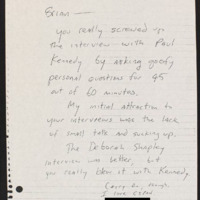 Brian —
you really screwed up
the interview with Paul
Kennedy by asking goofy
personal questions for 45
out of 60 minutes.
My initial attraction to
your interviews was the lack
of small talk and sucking up.
The Deborah Shapley
interview was better, but
you really blew it with Kennedy